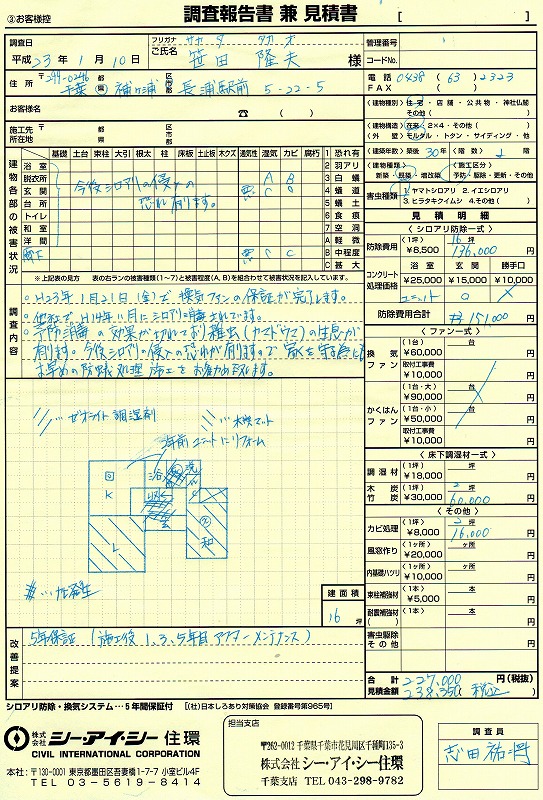 ③お客様控
調査報告書 兼 見積書 [ ]
調査日
平成23年1月10日
フリガナ ササダ タカオ
ご氏名 笹田 隆夫 様
管理番号
コードNo.
住所 〒299-0246 千葉 都県 袖ヶ浦 区市郡 長浦駅前 5-22-5
電話 0438 (63) 2323
FAX ( )
お客様名 ☎ ( )
施工先所在地 〒 都県 区市郡
(建物種別) 住宅・店舗・公共物・神社仏閣
その他( )
(建物構造) 在来・2×4・その他( )
(外壁) モルタル・トタン・サイディング・他
(建築年数) 築後 30年 (階数)
(建物種類) 新築・既築・増改築
(施工区分) 予防・駆除・更新・その他
害虫種類 1.ヤマトシロアリ 2.イエシロアリ
3.ヒラタキクイムシ 4.その他( )
建物各部の被害状況
基礎 土台 束柱 大引 根太 柱 床板 土止板 木クズ 通気性 湿気 カビ 腐朽
浴室
脱衣所
玄関
台所
トイレ
和室
洋間
今後シロアリの侵入の
恐れ有ります。
1 恐れ有
2 羽アリ
3 白蟻
4 蟻道
5 蟻土
6 食痕
7 空洞
A 軽微
B 中程度
C 甚大
※上記表の見方 表の右ランの被害種類(1~7)と被害程度(A,B)を組合わせて被害状況を記入しています。
調査内容
○H23年1月21日(金)で換気ファンの保証が完了します。
○他社でH14年11月にシロアリ消毒されています。
○予防消毒の効果が切れており雑虫(カマドウマ)の生息が
有ります。今後シロアリの侵入の恐れが有りますので家を守る為にも
お早めの防蟻処理施工をお勧め致します。
ゼオライト調湿剤
木炭マット
2年前ユニットにリフォーム
浴
洗
K
L
和
カビ発生
建面積
16坪
改善提案
5年保証 (施工後1、3、5年目アフターメンテナンス)
見積明細
(シロアリ防除一式)
防除費用 (1坪) ¥8,500 16坪 136,000円
コンクリート処理価格
浴室 ¥25,000 玄関 ¥15,000 勝手口 ¥10,000
ユニット ○ ×
防除費用合計 ¥151,000円
(ファン一式)
換気ファン (1台) ¥60,000 台 円
取付工事費 ¥10,000
かくはんファン (1台・大) ¥90,000 台
(1台・小) ¥50,000 台 円
取付工事費 ¥10,000
(床下調湿材一式)
調湿材 (1坪) ¥18,000 坪 円
木炭竹炭 (1坪) ¥30,000 2坪 60,000円
(その他)
カビ処理 (1坪) ¥8,000 2坪 16,000円
風窓作り (1ヶ所) ¥20,000 ヶ所 円
内基礎ハツリ (1ヶ所) ¥10,000 ヶ所 円
束柱補強材 (1本) ¥5,000 本 円
耐震補強材( ) (1本) 本 円
害虫駆除その他 円
合計見積金額 227,000円(税抜)
238,350(税込)
シロアリ防除・換気システム…5年間保証付 [(社)日本しろあり対策協会 登録番号第965号]
株式会社 シー・アイ・シー住環
CIVIL INTERNATIONAL CORPORATION
本社:〒130-0001 東京都墨田区吾妻橋1-7-7 小室ビル4F
TEL 03-5619-8414
担当支店
〒262-0012 千葉県千葉市花見川区千種町135-3
株式会社 シー・アイ・シー住環
千葉支店 TEL 043-298-9782
調査員
志田祐将